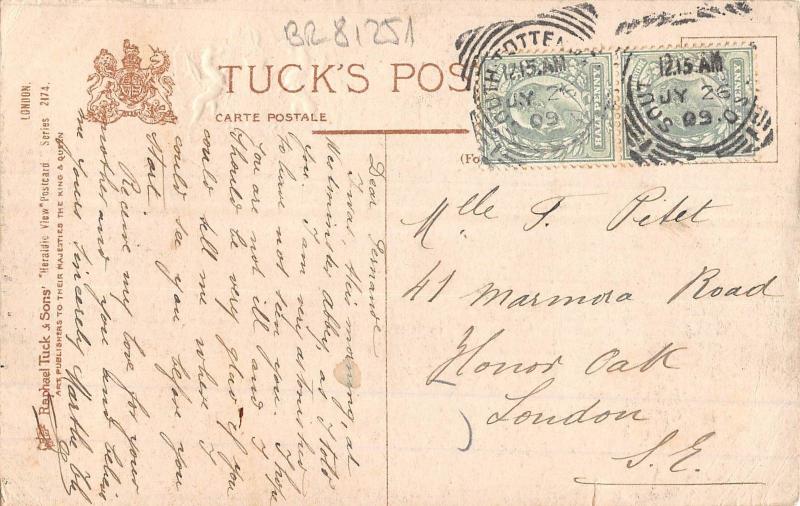 BR81251
TUCK'S POS
CARTE POSTALE
(Fo
LONDON.
Raphael Tuck & Sons' "Heraldic View" Postcard Series 2174.
ART PUBLISHERS TO THEIR MAJESTIES THE KING & QUEEN
SOUTH TOTTE
12.15.AM
JY 26
09
HALF PENNY
SOUT
12.15.AM
JY 26
09
PENNY
Dear Fernande
I was, this morning, at
Westminster Abbey, as I told
you. I am very astonished
to have not seen you. I hope
you are not ill and I
should be very glad if you
could tell me where I
could see you before you
start.
Receive my love for your
mother and you and believe
me yours sincerely Marthe
Mlle F. Pitet
41 Marmora Road
Honor Oak
London
S.E.